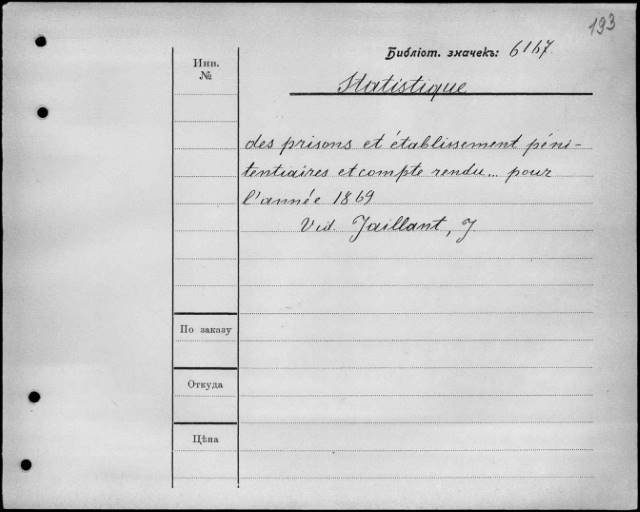 193
Библіот. значекъ: 6147.
Инв.
№
Statistique
des prisons et établissement péni-
tentiaires et compte rendu... pour
l'année 1869
Vid. Jaillant, J
По заказу
Откуда
Цѣна